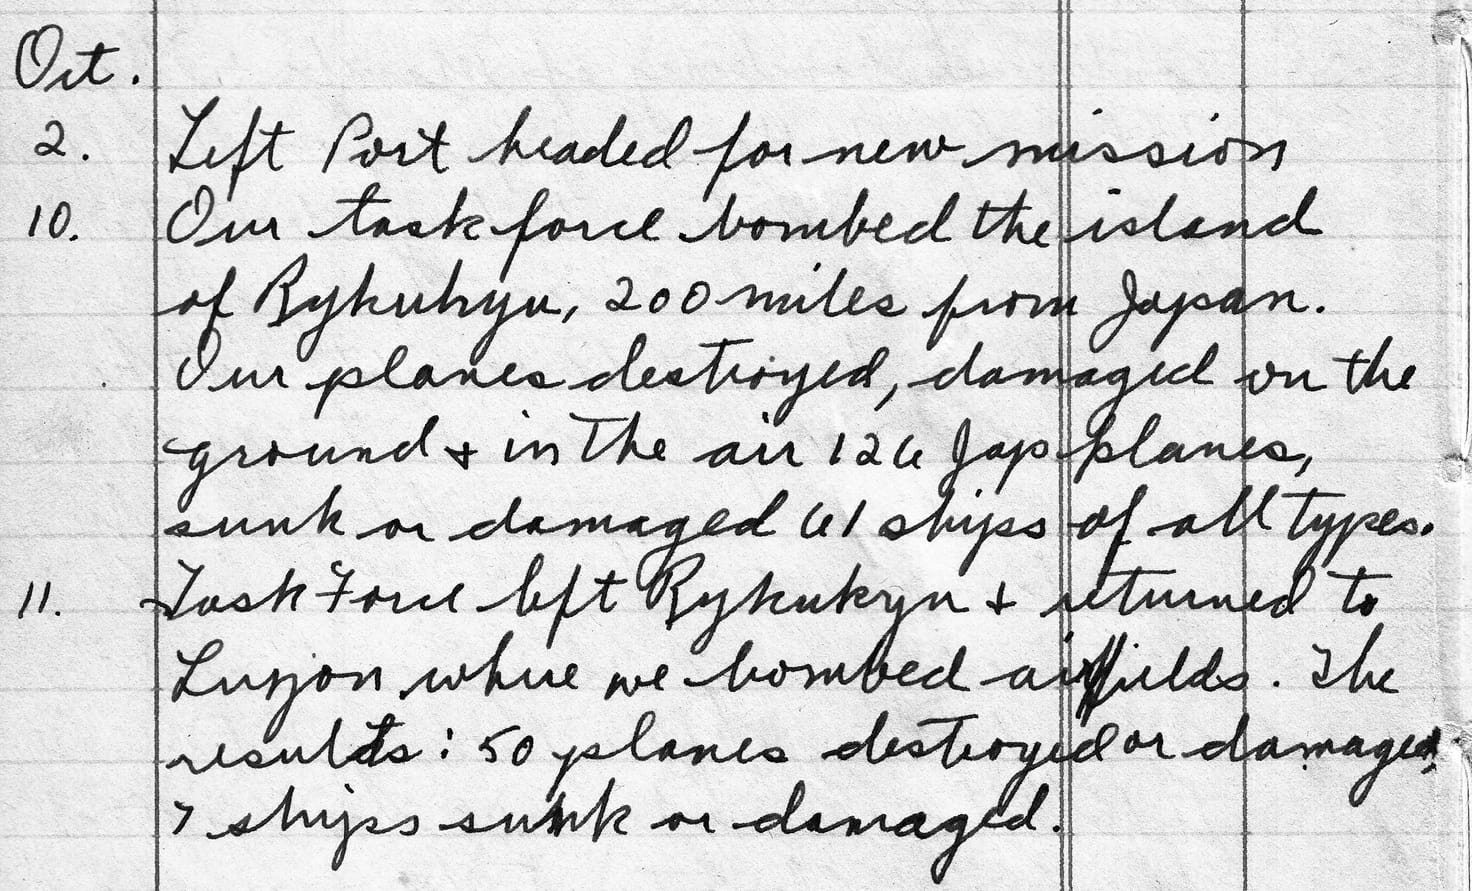 Oct.
2. Left Port headed for new mission
10. Our task force bombed the island
of Rykukyu, 200 miles from Japan.
Our planes destroyed, damaged on the
ground + in the air 126 Jap planes,
sunk or damaged 61 ships of all types.
11. Task Force left Rykukyu + returned to
Luzon where we bombed airfields. The
results: 50 planes destroyed or damaged,
7 ships sunk or damaged.